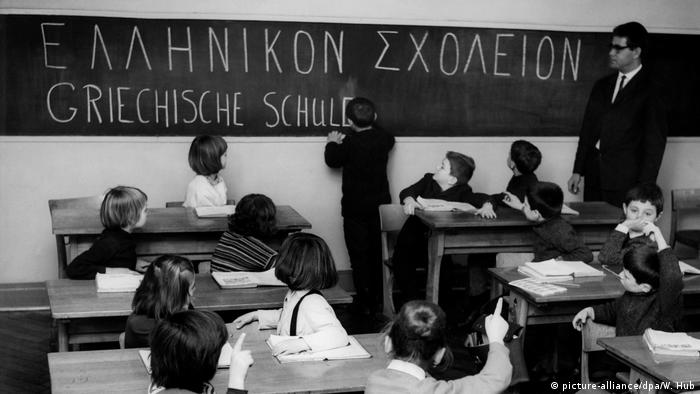 ΕΛΛΗΝΙΚΟΝ ΣΧΟΛΕΙΟΝ
GRIECHISCHE SCHULE
picture-alliance/dpa/W. Hub